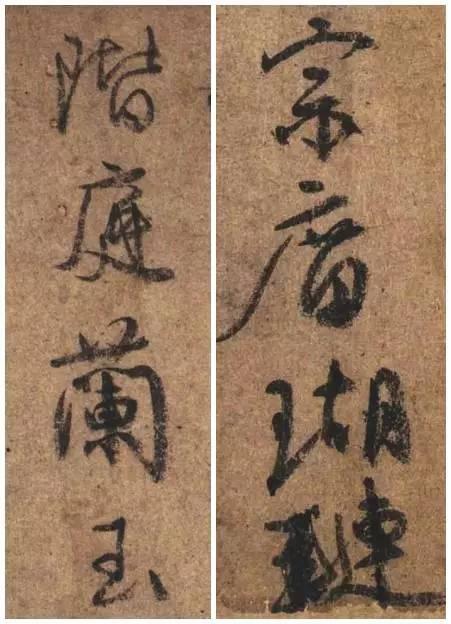 宗庿瑚璉
階庭蘭玉